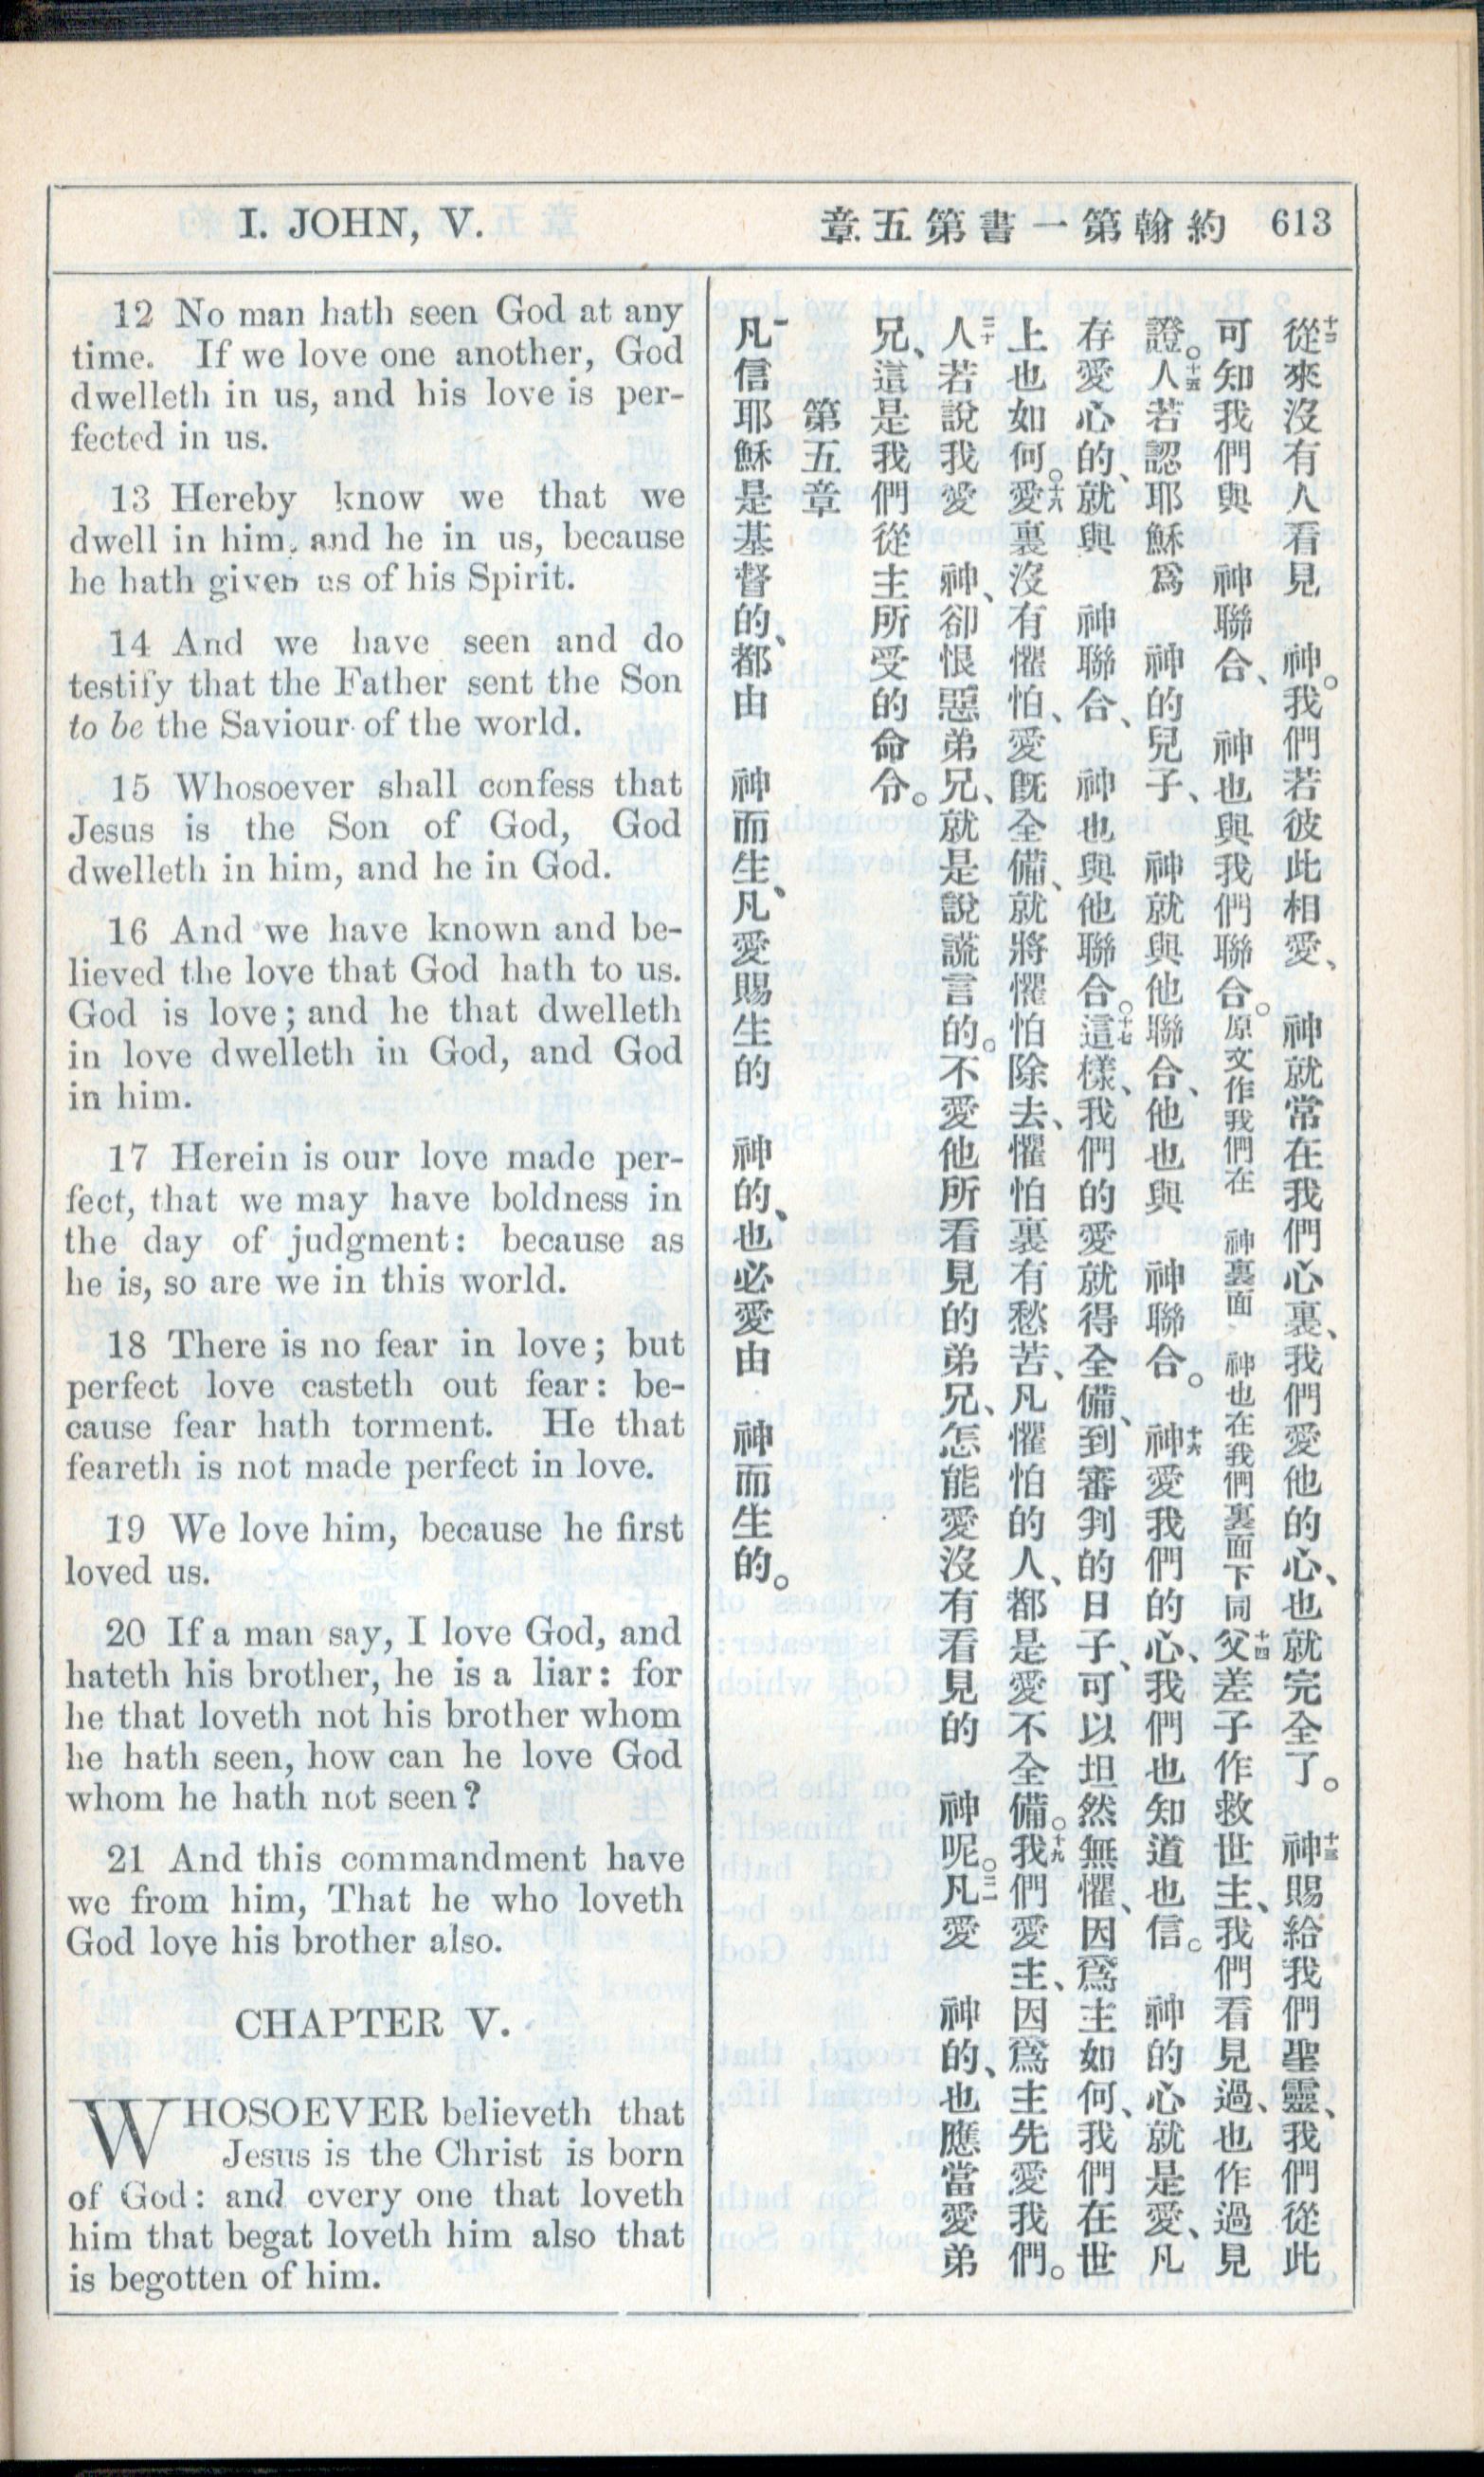 I. JOHN, V.
約翰第一書第五章 613
12 No man hath seen God at any
time. If we love one another, God
dwelleth in us, and his love is per-
fected in us.
13 Hereby know we that we
dwell in him, and he in us, because
he hath given us of his Spirit.
14 And we have seen and do
testify that the Father sent the Son
to be the Saviour of the world.
15 Whosoever shall confess that
Jesus is the Son of God, God
dwelleth in him, and he in God.
16 And we have known and be-
lieved the love that God hath to us.
God is love; and he that dwelleth
in love dwelleth in God, and God
in him.
17 Herein is our love made per-
fect, that we may have boldness in
the day of judgment: because as
he is, so are we in this world.
18 There is no fear in love; but
perfect love casteth out fear: be-
cause fear hath torment. He that
feareth is not made perfect in love.
19 We love him, because he first
loved us.
20 If a man say, I love God, and
hateth his brother, he is a liar: for
he that loveth not his brother whom
he hath seen, how can he love God
whom he hath not seen?
21 And this commandment have
we from him, That he who loveth
God love his brother also.
CHAPTER V.
WHOSOEVER believeth that
Jesus is the Christ is born
of God: and every one that loveth
him that begat loveth him also that
is begotten of him.
十二從來沒有人看見 神。我們若彼此相愛、 神就常在我們心裏、我們愛他的心、也就完全了。十三 神賜給我們聖靈、我們從此
可知我們與 神聯合、 神也與我們聯合。原文作我們在 神裏面 神也在我們裏面下同十四父差子作救世主、我們看見過、也作過見
證。十五人若認耶穌爲 神的兒子、 神就與他聯合、他也與 神聯合。十六 神愛我們的心、我們也知道也信。 神的心就是愛、凡
存愛心的、就與 神聯合、 神也與他聯合。十七這樣、我們的愛就得全備、到審判的日子、可以坦然無懼、因爲主如何、我們在世
上也如何。十八愛裏沒有懼怕、愛旣全備、就將懼怕除去、懼怕裏有愁苦、凡懼怕的人、都是愛不全備。十九我們愛主、因爲主先愛我們。
二十人若說我愛 神、卻恨惡弟兄、就是說謊言的。不愛他所看見的弟兄、怎能愛沒有看見的 神呢。二一凡愛 神的、也應當愛弟
兄、這是我們從主所受的命令。
第五章
一凡信耶穌是基督的、都由 神而生、凡愛賜生的 神的、也必愛由 神而生的。